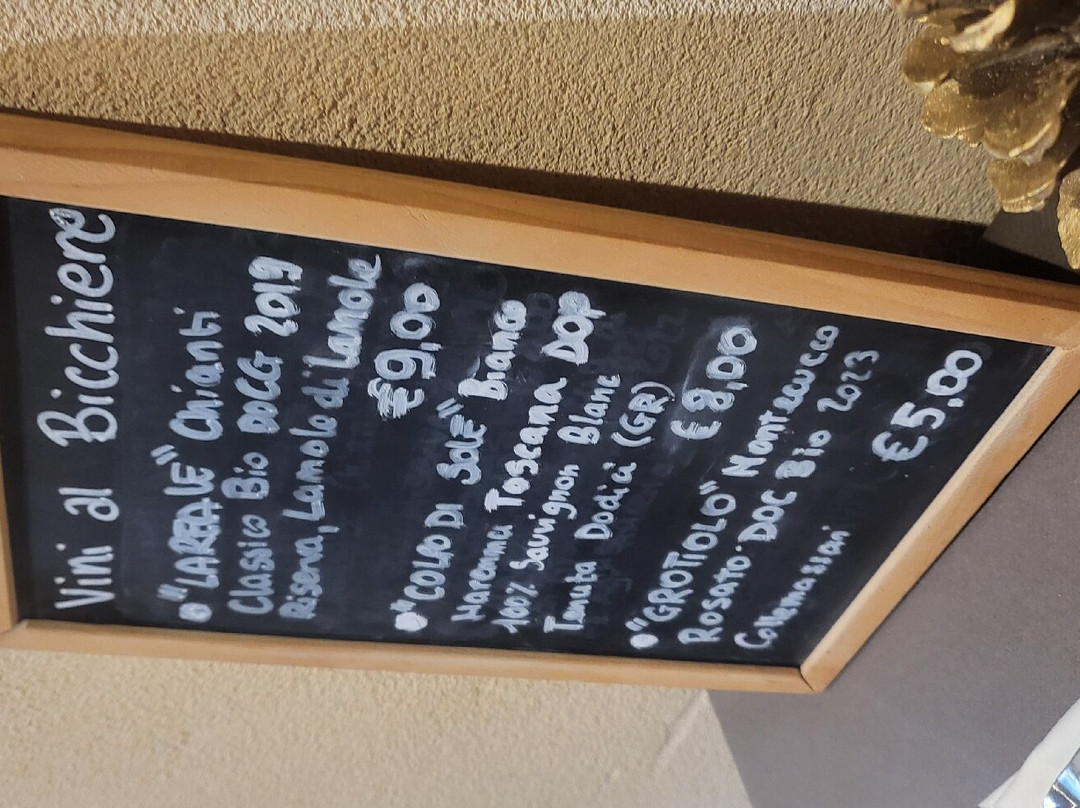 Vini al Bicchiere
"LAREALE" Chianti
Classico Bio DOCG 2019
Riserva, Lamole di Lamole
€9,00
"COLPO DI SOLE" Bianco
Maremma Toscana DOP
100% Sauvignon Blanc
Tenuta Dodici (GR)
€8,00
"GROTTOLO" Montecucco
Rosato DOC Bio 2023
Collemassari
€5,00